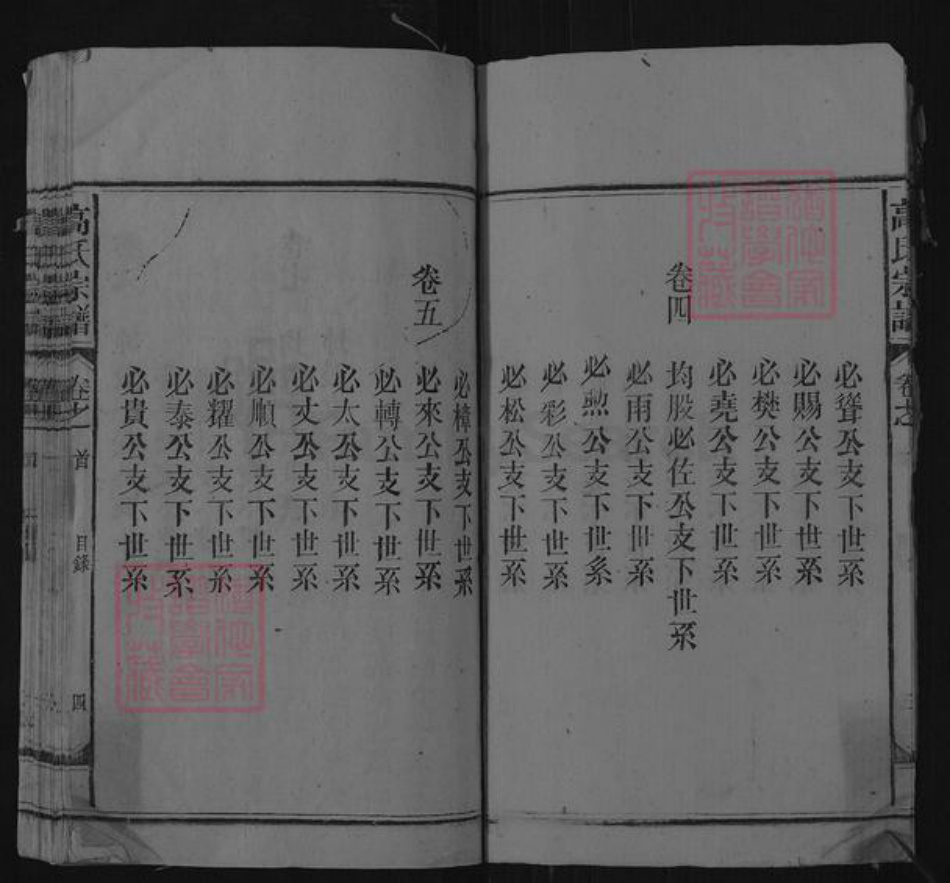 高氏宗譜
必聳公支下世系
必賜公支下世系
必樊公支下世系
必堯公支下世系
卷四
均股必佐公支下世系
必雨公支下世系
必勲公支下世系
必彩公支下世系
必松公支下世系
必樟公支下世系
卷五
必來公支下世系
必轉公支下世系
必太公支下世系
必丈公支下世系
必順公支下世系
必耀公支下世系
必泰公支下世系
必貴公支下世系
高氏宗譜
卷之首
目錄
四